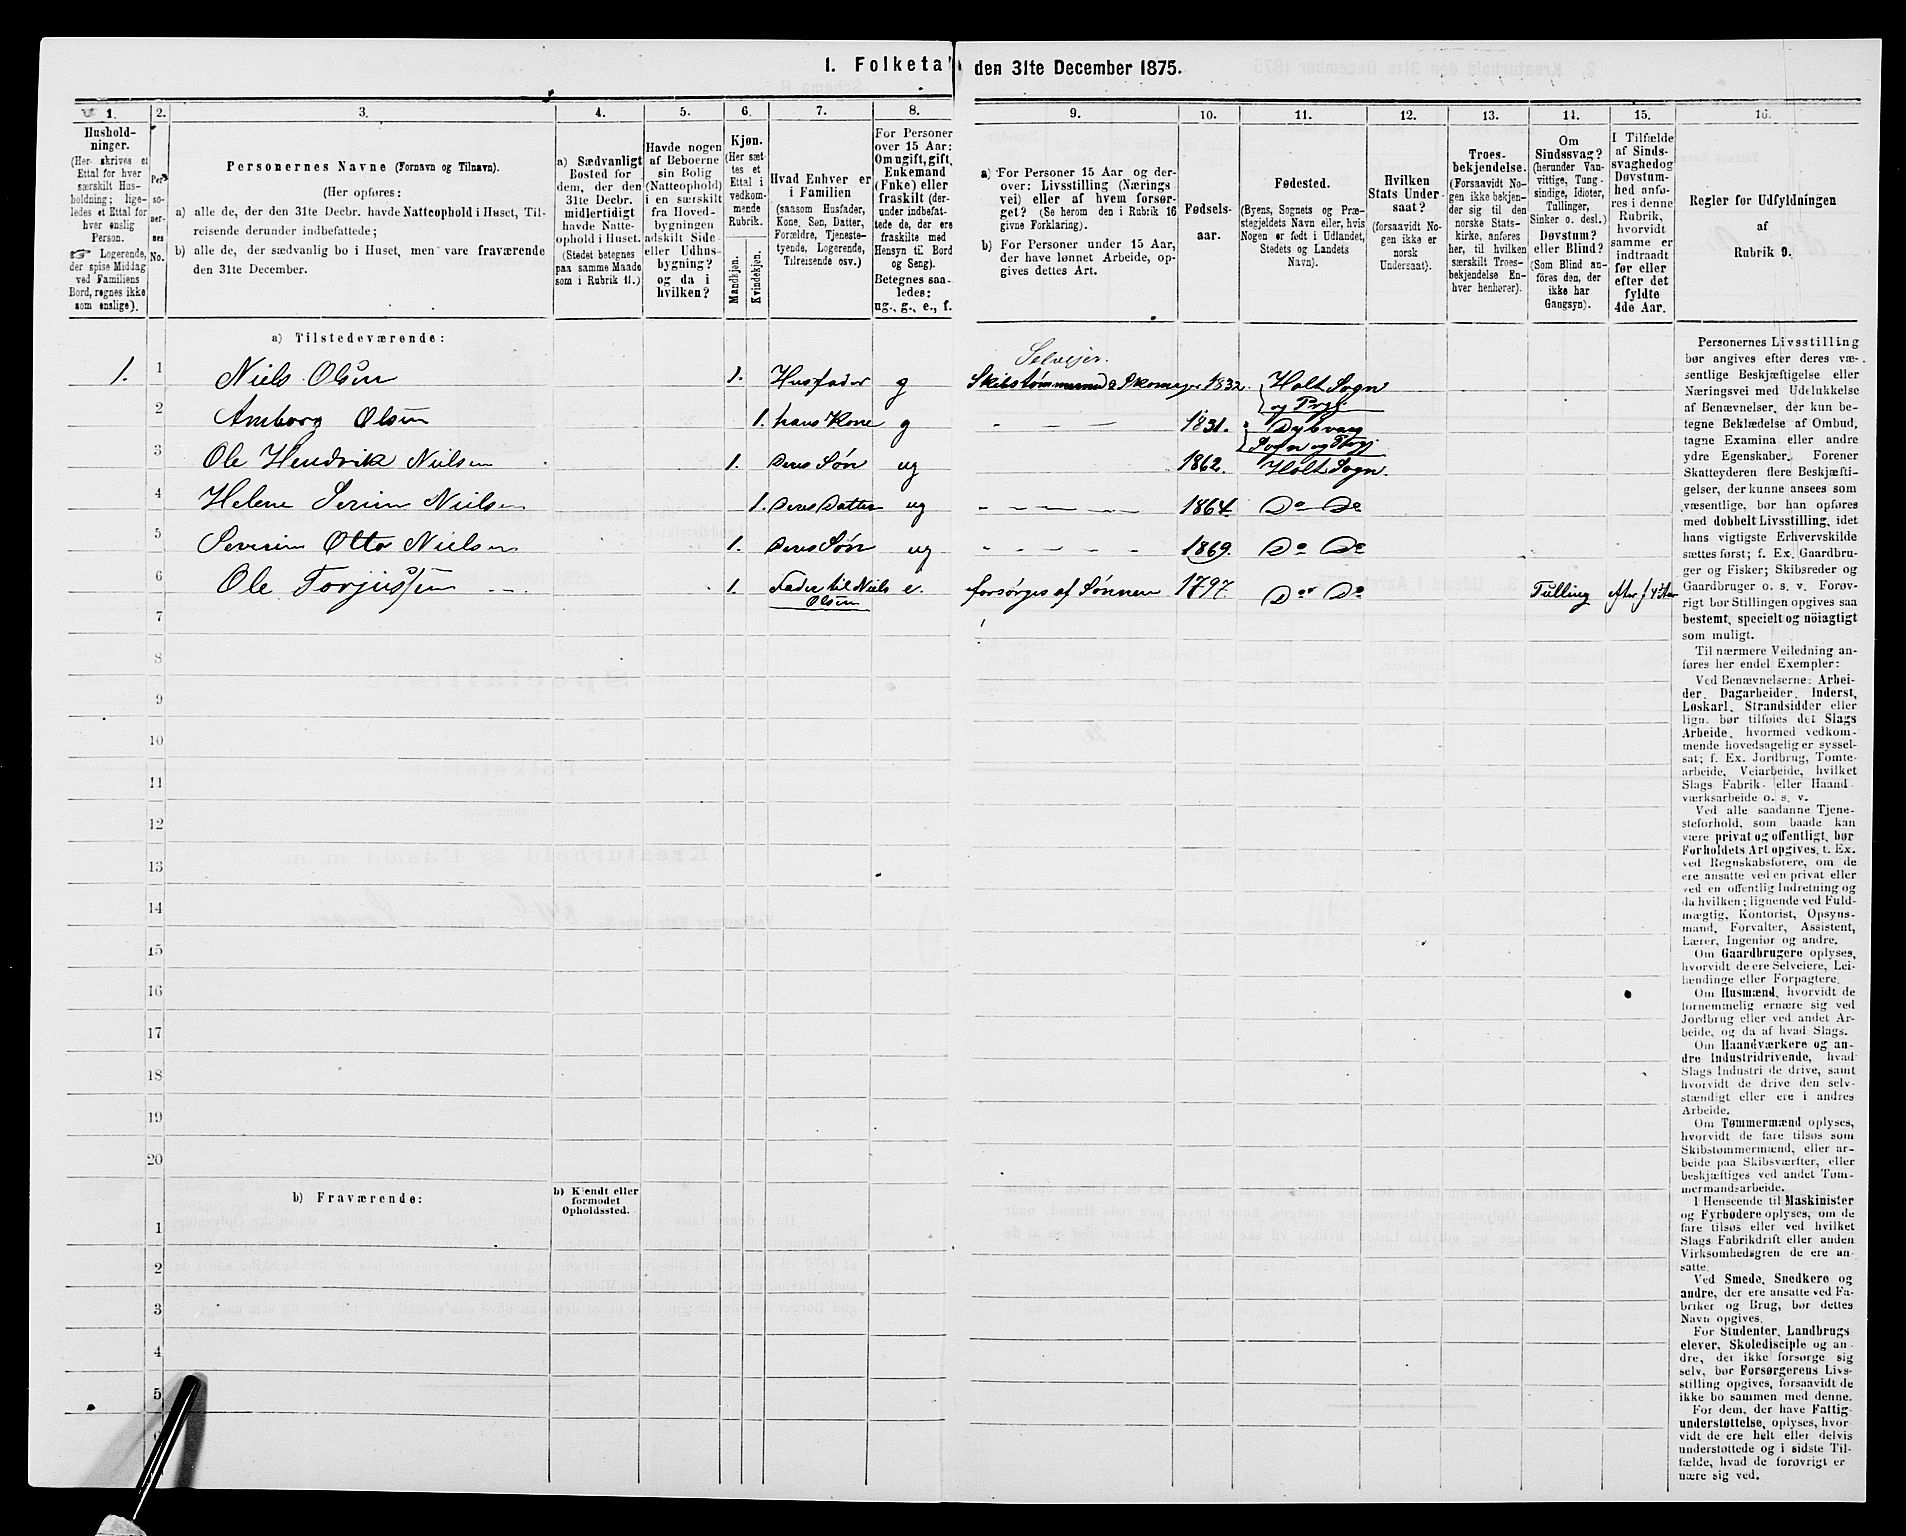 1. Folketal den 31te December 1875.
1. 2. 3. 4. 5. 6. 7. 8. 9. 10. 11. 12. 13. 14. 15. 16.
Hushold-
ninger.
(Her skrives et
Ettal for hver
særskilt Hus-
holdning; lige-
ledes et Ettal for
hver enslig
Person.
☞ Logerende,
der spise Middag
ved Familiens
Bord, regnes ikke
som enslige).
Per-
so-
ner-
nes
No.
Personernes Navne (Fornavn og Tilnavn).
(Her opføres:
a) alle de, der den 31te Decbr. havde Natteophold i Huset, Til-
reisende derunder indbefattede;
b) alle de, der sædvanlig bo i Huset, men vare fraværende
den 31te December.
a) Sædvanligt
Bosted for
dem, der den
31te Decbr.
midlertidigt
havde Natte-
ophold i Huset.
(Stedet betegnes
paa samme Maade
som i Rubrik 11.)
Havde nogen
af Beboerne
sin Bolig
(Natteophold)
i en særskilt
fra Hoved-
bygningen
adskilt Side-
eller Udhus-
bygning?
og da i
hvilken?
Kjøn.
(Her sæt-
tes et
Ettal i
vedkom-
mende
Rubrik.
Mandkjøn.
Kvindekjøn.
Hvad Enhver er
i Familien
(saasom Husfader,
Kone, Søn, Datter,
Forældre, Tjeneste-
tyende, Logerende,
Tilreisende osv.)
For Personer
over 15 Aar:
Om ugift, gift,
Enkemand
(Enke) eller
fraskilt (der-
under indbefat-
tede de, der ere
fraskilte med
Hensyn til Bord
og Seng).
Betegnes saa-
ledes:
ug., g., e., f.
a) For Personer 15 Aar og der-
over: Livsstilling (Nærings
vei) eller af hvem forsør-
get? (Se herom den i Rubrik 16
givne Forklaring).
b) For Personer under 15 Aar,
der have lønnet Arbeide, op-
gives dettes Art.
Fødsels-
aar.
Fødested.
(Byens, Sognets og Præ-
stegjeldets Navn eller, hvis
Nogen er født i Udlandet,
Stedets og Landets
Navn).
Hvilken
Stats Under-
saat?
(forsaavidt No-
gen ikke er
norsk
Undersaat).
Troes-
bekjendelse.
(Forsaavidt No-
gen ikke bekjen-
der sig til den
norske Stats-
kirke, anføres
her, til hvilken
særskilt Troes-
bekjendelse En-
hver henhører).
Om
Sindssvag?
(herunder Van-
vittige, Tung-
sindige, Idioter,
Tullinger,
Sinker o. desl.)
Døvstum?
eller Blind?
(Som Blind an-
føres den, der
ikke har
Gangsyn).
I Tilfælde
af Sinds-
svaghed og
Døvstum-
hed anfø-
res i denne
Rubrik,
hvorvidt
samme er
indtraadt
før eller
efter det
fyldte
4de Aar.
Regler for Udfyldningen
af
Rubrik 9.
a) Tilstedeværende:
Selveier.
1. 1 Niels Olsen 1. Husfader g Skibstømmermd & Skomager 1832. Holt Sogn
og Prgj.
2 Amborg Olsen 1. hans Kone g 1831. Dybvaag
Sogn og Prgj
3 Ole Hendrik Nielsen 1. Deres Søn ug 1862. Holt Sogn.
4 Helene Serine Nielsen 1. Deres Datter ug 1864. Do Do
5 Severin Otto Nielsen 1. Deres Søn ug 1869. Do Do
6 Ole Torjussen 1. Fader til Niels e. forsørges af Sønnen 1797. Do Do Tulling efter f 4de Aar
Olsen
7
8
9
10
11
12
13
14
15
16
17
18
19
20
b) Fraværende: b) Kjendt eller
formodet
Opholdssted.
1
2
3
4
5
6
Personernes Livsstilling
bør angives efter deres væ-
sentlige Beskjæftigelse eller
Næringsvei med Udelukkelse
af Benævnelser, der kun be-
tegne Beklædelse af Ombud,
tagne Examina eller andre
ydre Egenskaber. Forener
Skatteyderen flere Beskjæfti-
gelser, der kunne ansees som
væsentlige, bør han opføres
med dobbelt Livsstilling, idet
hans vigtigste Erhvervskilde
sættes først; f. Ex. Gaardbru-
ger og Fisker; Skibsreder og
Gaardbruger o. s. v. Forøv-
rigt bør Stillingen opgives saa
bestemt, specielt og nöiagtigt
som muligt.
Til nærmere Veiledning an-
føres her endel Exempler:
Ved Benævnelserne: Arbei-
der, Dagarbeider, Inderst,
Løskarl, Strandsidder eller
lign. bør tilføies det Slags
Arbeide, hvormed vedkom-
mende hovedsagelig er syssel-
sat; f. Ex. Jordbrug, Tomte-
arbeide, Veiarbeide, hvilket
Slags Fabrik- eller Haand
værksarbeide o. s. v.
Ved alle saadanne Tjene-
steforhold, som baade kan
være privat og offentligt, bør
Forholdets Art opgives, t. Ex.
ved Regnskabsførere, om de
ere ansatte ved en privat eller
ved en offentlig Indretning og
da hvilken; lignende ved Fuld-
mægtig, Kontorist, Opsyns-
mand, Forvalter, Assistent,
Lærer, Ingeniør og andre.
Om Gaardbrugere oplyses,
hvorvidt de ere Selveiere, Lei-
lændinge eller Forpagtere.
Om Husmænd, hvorvidt de
fornemmelig ernære sig ved
Jordbrug eller ved andet Ar-
beide, og da af hvad Slags.
Om Haandværkere og an-
dre Industridrivende, hvad
Slags Industri de drive, samt
hvorvidt de drive den selv-
stændigt eller ere i andres
Arbeide.
Om Tømmermænd oplyses,
hvorvidt de fare tilsøs som
Skibstømmermænd, eller ar-
beide paa Skibsværfter, eller
beskjæftiges ved andet Tøm-
mermandsarbeide.
I Henseende til Maskinister
og Fyrbødere oplyses, om de
fare tilsøs eller ved hvilket
Slags Fabrikdrift eller anden
Virksomhedsgren de ere an-
satte.
Ved Smede, Snedkere og
andre, der ere ansatte ved Fa-
briker og Brug, bør dettes
Navn opgives.
For Studenter, Landbrugs
elever, Skoledisciple og an-
dre, der ikke forsørge sig
selv, bør Forsørgerens Livs-
stilling opgives, forsaavidt de
ikke bo sammen med denne.
For dem, der have Fattig-
understøttelse, oplyses, hvor-
vidt de ere helt eller delvis
understøttede og i sidste Til-
fælde, hvad de forøvrigt er
nære sig ved.